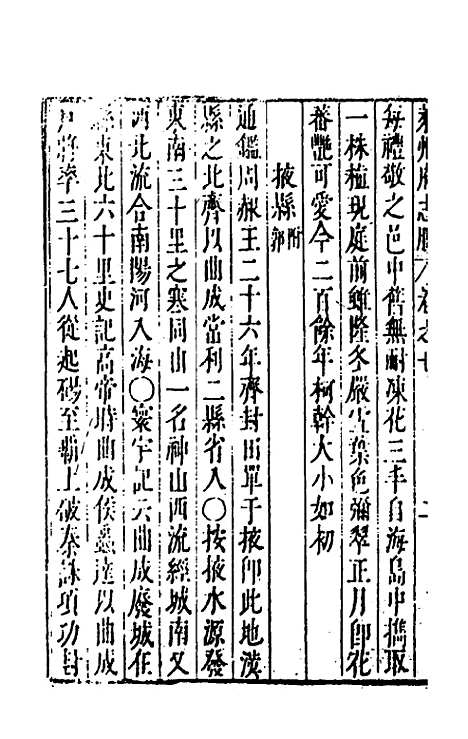 萊州府志 卷之七 二
每禮敬之邑中舊無耐凍花三丰自海島中攜取
一株植現庭前雖隆冬嚴雪葉色彌翠正月卽花
蕃艷可愛今二百餘年柯幹大小如初
掖縣附郭
通鑑周赧王二十六年齊封田單于掖卽此地漢
縣之北齊以曲成當利二縣省入○按掖水源發
東南三十里之寒同山一名神山西流經城南又
西北流合南陽河入海○寰宇記云曲成廢城在
縣東北六十里史記高帝時曲成侯蟲達以曲成
戶將率三十七人從起碭至霸上破秦誅項功封